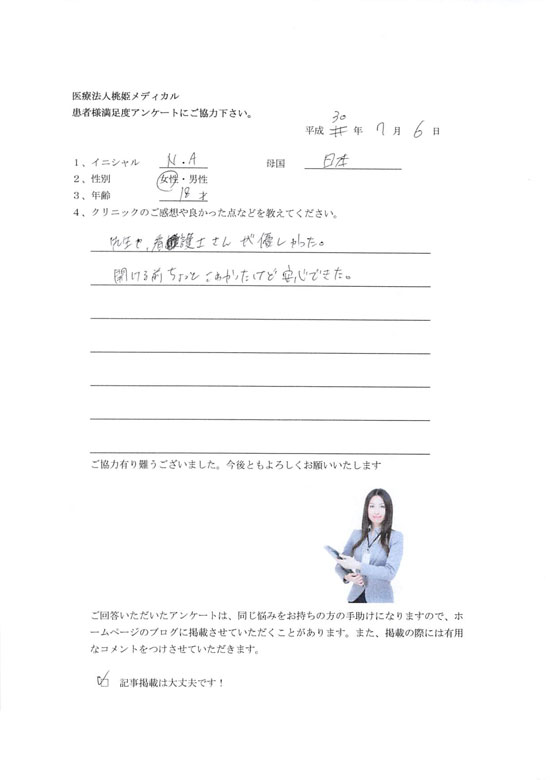 医療法人桃姫メディカル
患者様満足度アンケートにご協力下さい。
平成 30 年 7 月 6 日
1、イニシャル N.A 母国 日本
2、性別 女性・男性
3、年齢 18 才
4、クリニックのご感想や良かった点などを教えてください。
先生や、看護士さんが優しかった。
開ける前ちょっとこわかったけど安心できた。
ご協力有り難うございました。今後ともよろしくお願いいたします
ご回答いただいたアンケートは、同じ悩みをお持ちの方の手助けになりますので、ホ
ームページのブログに掲載させていただくことがあります。また、掲載の際には有用
なコメントをつけさせていただきます。
記事掲載は大丈夫です！